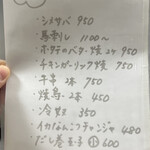 ・シメサバ 950
・馬刺し 1100〜
・ホタテのバター焼 2ヶ 950
・チキンガーリック焼 750
・牛串 2本 750
・焼鳥 2本 450
・冷奴 350
・イカなんこつチャンジャ 480
・だし巻玉子 小 600